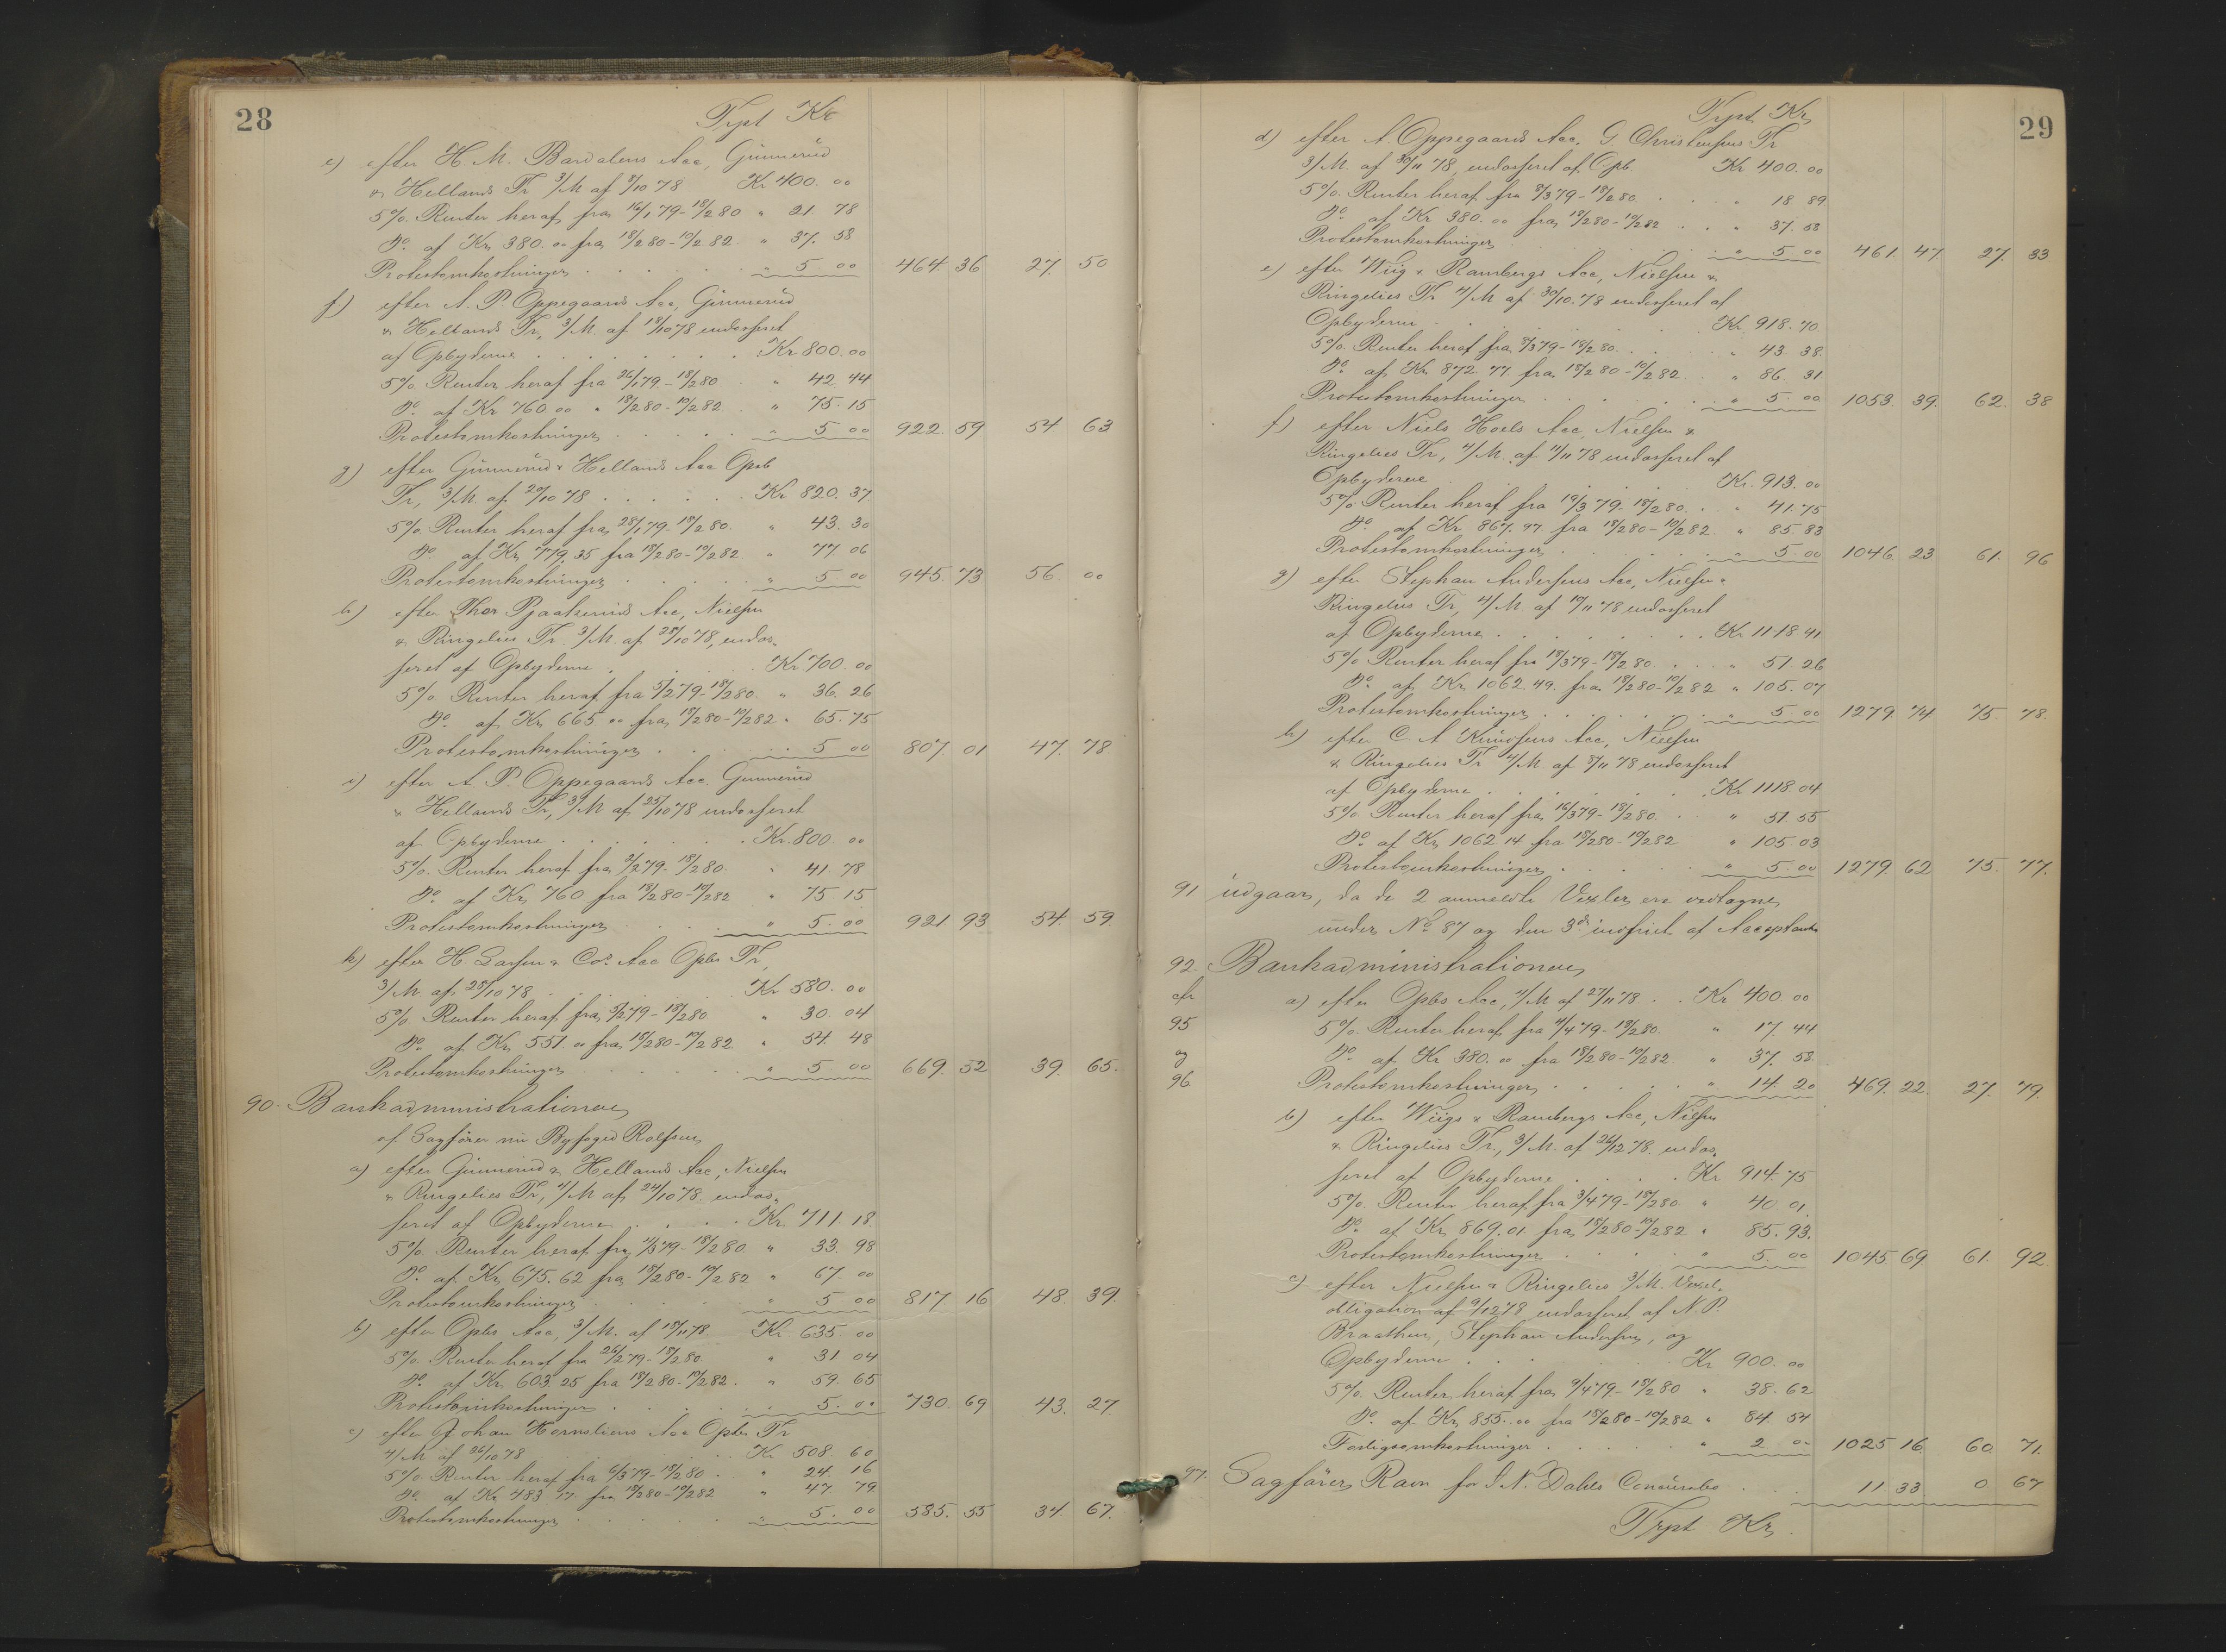 28
Trpt Kr
e) efter H. M. Bardalens Acc, Gunnerud
& Hellands Tr 3/M af 8/10 78 Kr 400. 00
5% Renter heraf fra 16/1 79 - 18/2 80 " 21 78
Do af Kr 380. 00 fra 18/2 80 - 10/2 82 " 37. 58
Protestomkostninger " 5 00 464. 36 27. 50
f) efter A. P Oppegaards Acc, Gunnerud
& Hellands Tr, 3/M. af 18/10 78 endosseret
af Opbyderne Kr 800. 00
5% Renter heraf fra 26/1 79 - 18/2 80 " 42. 44
Do af Kr 760 00 " 18/2 80 - 10/2 82 " 75. 15
Protestomkostninger " 5 00 922. 59 54 63
g) efter Gunnerud & Hellands Acc Opb
Tr, 3/M. af 20/10 78 Kr 820. 37
5% Renter heraf fra 28/1 79 - 18/2 80 " 43. 30
Do af Kr 779. 35 fra 18/2 80 - 10/2 82 " 77 06
Protestomkostninger " 5 00 945. 73 56. 00
h) efter Thor Pjaakeruds Acc, Nielsen
& Ringelies Tr. 3/M. af 28/10 78, endos-
seret af Opbyderne Kr. 700. 00
5% Renter heraf fra 5/2 79 - 18/2 80 " 36. 26
Do af Kr 665 00 fra 18/2 80 - 10/2 82 " 65. 75
Protestomkostninger 5 00 807. 01 47. 78
i) efter A. P. Oppegaards Acc. Gunnerud
& Hellands Tr, 3/M af 25/10 78 endosseret
af Opbyderne Kr. 800 00
5% Renter heraf fra 2/2 79 - 18/2 80 " 41 78
Do af Kr 760 fra 18/2 80 - 10/2 82 " 75. 15
Protestomkostninger " 5. 00 921. 93 54. 59.
k) efter H Larsen & Cos. Acc Opbs Tr,
3/M af 28/10 78 Kr 580. 00
5% Renter heraf fra 5/2 79 - 18/2 80 " 30. 04
Do af Kr 551. 00 fra 18/2 80 - 10/2 82 " 54. 48
Protestomkostninger " 5 00 669. 52 39. 65.
90. Bankadministrationen
af Sagfører nu Byfoged Rolfsen
a) efter Gunnerud & Hellands Acc, Nielsen
& Ringelies Tr, 4/M af 24/10 78. endos-
seret af Opbyderne Kr. 711. 18.
5% Renter heraf fra 4/3 79 - 18/2 80 " 33. 98
Do af Kr 675. 62 fra 18/2 80 - 10/2 82 " 67 00
Protestomkostninger " 5 00 817 16 48. 39.
b) efter Opbs Acc, 3/M. af 18/11 78 Kr 635. 00
5% Renter heraf fra 26/2 79 - 18/2 80 " 31 04
Do af Kr 603 25 fra 18/2 80 - 10/2 82. " 59. 65
Protestomkostninger " 5. 00 730. 69 43. 27.
c) efter Johan Hornsliens Acc Opbs Tr
4/M af 26/10 78 Kr 508 60
5% Renter heraf fra 6/3 79 - 18/2 80 " 24. 16
Do af Kr 483 17 fra 18/2 80 - 10/2 82 " 47 79
Protestomkostninger " 5. 00 585. 55 34. 67.
29
Trpt Kr
d) efter A. Oppegaards Acc. G. Christensens Tr
3/M. af 30/11 78, endosseret af Opb. Kr 400. 00
5% Renter heraf fra 8/3 79 - 18/2 80 " 18 89
Do af Kr 380. 00 fra 18/2 80 - 10/2 82 " 37. 58
Protestomkostninger " 5 00 461. 47. 27. 33
e) efter Wiig & Rambergs Acc, Nielsen &
Ringelies Tr 4/M af 30/10. 78 endosseret af
Opbyderne Kr. 918. 70.
5% Renter heraf fra 8/3 79 - 18/2 80 " 43 38.
Do af Kr 872 77 fra 18/2 80 - 10/2 82 " 86. 31
Protestomkostninger " 5. 00 1053. 39. 62. 38
f) efter Niels Hoels Acc Nielsen &
Ringelies Tr, 4/M. af 11/11 78 endosseret af
Opbyderne Kr. 913. 00
5% Renter heraf fra 19/3 79 - 18/2 80 " 41. 75
Do af Kr 867. 97. fra 18/2 80 - 10/2 82 " 85. 83
Protestomkostninger " 5. 00 1046. 23 61. 96
g) efter Stephan Andersens Acc, Nielsen &
Ringelies Tr, 4/M. af 10/11 78 endosseret
af Opbyderne Kr 1118 41
5% Renter heraf fra 18/3 79 - 18/2 80 " 51. 26
Do af Kr 1062. 49. fra 18/2 80 - 10/2 82 " 105. 07
Protestomkostninger " 5 00 1279. 74 75. 78.
h) efter C. A Knudsens Acc, Nielsen
& Ringelies Tr 4/M af 8/11 78 endosseret
af Opbyderne Kr 1118. 04
5% Renter heraf fra 16/3 79 - 18/2 80 " 51. 55
Do af Kr 1062 14 fra 18/2 80 - 10/2 82 " 105 03
Protestomkostninger " 5. 00 1279. 62 75. 77.
91 udgaar, da de 2 anmeldte Vexler ere vedtagne
under No 87 og den 3die indfriet af Acceptanten
92. Bankadministrationen
cfr 95 og 96
a) efter Opbs Acc, 4/M af 27/11 78 Kr 400. 00
5% Renter heraf fra 4/4 79 - 18/2 80 " 17. 44
Do af Kr 380. 00 fra 18/2 80 - 10/2 82 " 37. 58
Protestomkostninger " 14. 20 469. 22. 27. 79.
b) efter Wiigs & Rambergs Acc, Nielsen
& Ringelies Tr., 3/M. af 26/12 78. endos-
seret af Opbyderne Kr 914. 75
5% Renter heraf fra 3/4 79 - 18/2 80 " 40. 01.
Do af Kr 869. 01. fra 18/2 80 - 10/2 82 " 85. 93.
Protestomkostninger " 5. 00 1045 69. 61. 92
c) efter Nielsen & Ringelies 3/M. Vexel-
obligation af 9/12 78 endosseret af N. P.
Braathen, Stephan Andersen, og
Opbyderne Kr 900. 00
5% Renter heraf fra 9/4 79 - 18/2 80 " 38. 62
Do af Kr 855. 00 fra 18/2 80 - 10/2 82 " 84. 54
Forligsomkostninger " 2 00 1025 16. 60. 71.
97. Sagfører Ravn for I. N. Dahls Concursbo 11 33. 0 67
Trpt Kr.